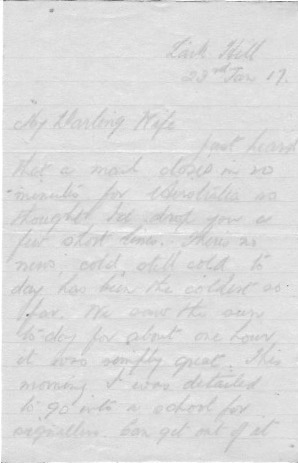 Lark Hill
23rd Jan 17.
My Darling Wife
Just heard
that a mail closes in 20
minutes for Australia so
thought I'd drop you a
few short lines. There's no
news, cold still cold to
day has been the coldest so
far. We saw the sun
to-day for about one hour
it was simply great. This
morning I was detailed
to go into a school for
signallers. Can get out of it